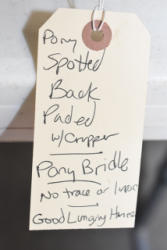 Pony
Spotted
Back
Paded
w/Crupper
Pony Bridle
No trace or
Good Lunging Harness